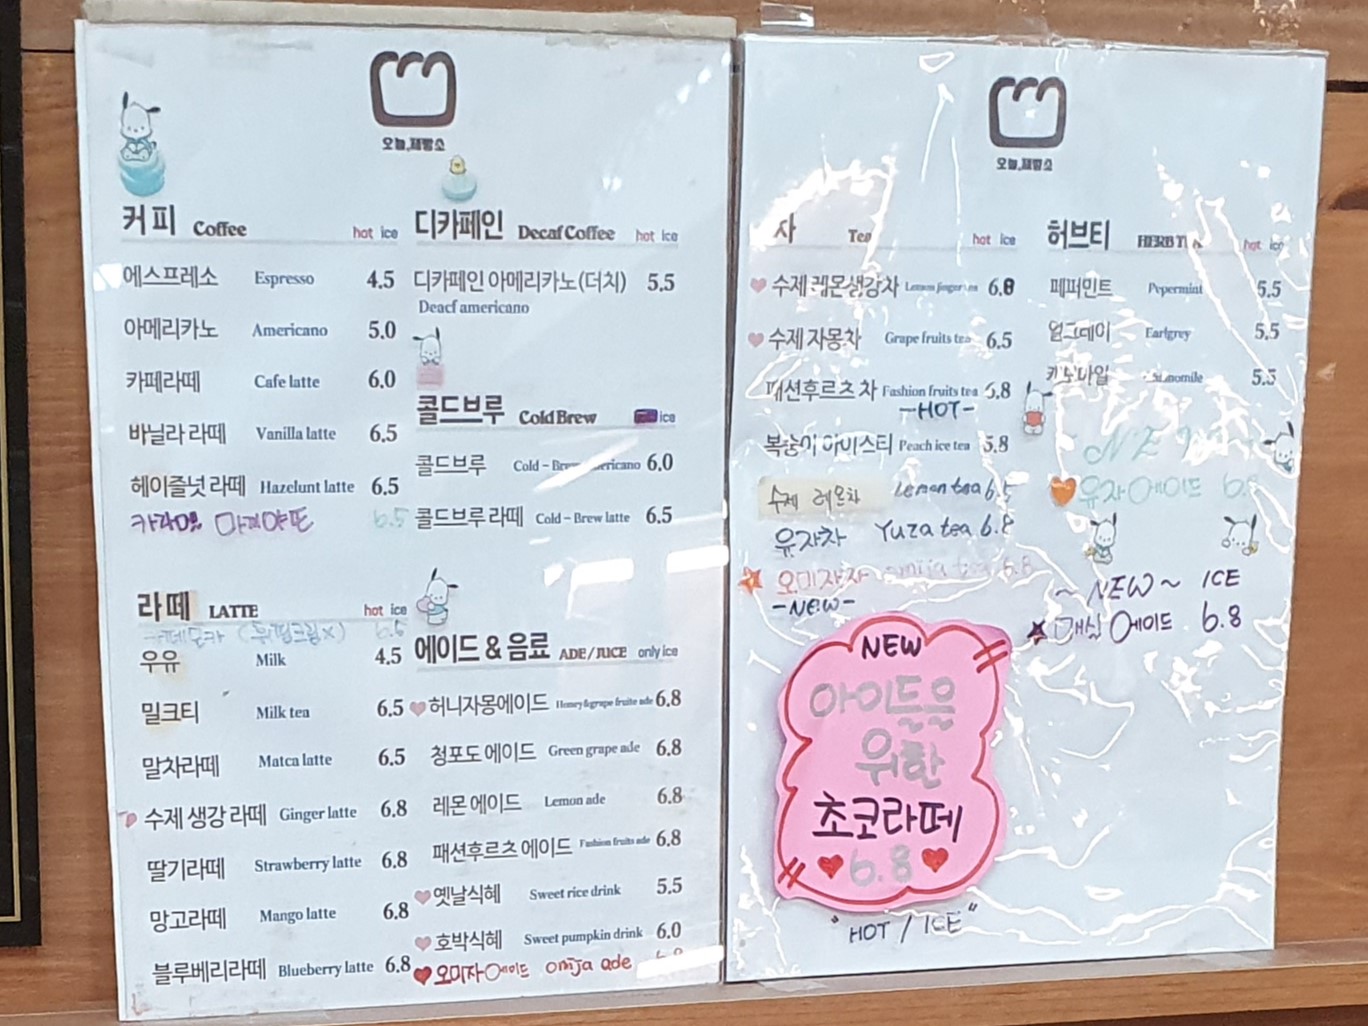 오늘,제빵소
커피 Coffee hot ice
에스프레소 Espresso 4.5
아메리카노 Americano 5.0
카페라떼 Cafe latte 6.0
바닐라 라떼 Vanilla latte 6.5
헤이즐넛 라떼 Hazelunt latte 6.5
카라멜 마끼야또 6.5
라떼 LATTE hot ice
카페모카 (휘핑크림X) 6.5
우유 Milk 4.5
밀크티 Milk tea 6.5
말차라떼 Matca latte 6.5
수제 생강 라떼 Ginger latte 6.8
딸기라떼 Strawberry latte 6.8
망고라떼 Mango latte 6.8
블루베리라떼 Blueberry latte 6.8
디카페인 Decaf Coffee hot ice
디카페인 아메리카노(더치) 5.5
Deacf americano
콜드브루 Cold Brew ice
콜드브루 Cold - 6.0
콜드브루 라떼 Cold - Brew latte 6.5
에이드 & 음료 ADE / JUICE only ice
허니자몽에이드 Honey&grape fruite ade 6.8
청포도 에이드 Green grape ade 6.8
레몬 에이드 Lemon ade 6.8
패션후르츠 에이드 Fashion fruits ade 6.8
옛날식혜 Sweet rice drink 5.5
호박식혜 Sweet pumpkin drink 6.0
오미자에이드 omija ade
오늘,제빵소
차 Tea hot ice
수제 레몬생강차 6.8
수제 자몽차 Grape fruits tea 6.5
패션후르츠 차 Fashion fruits tea 6.8
-HOT-
복숭아 아이스티 Peach ice tea 5.8
수제 레몬차 Lemon tea 6.5
유자차 Yuza tea 6.8
오미자차 omija tea 6.8
-NEW-
NEW
아이들을
위한
초코라떼
6.8
"HOT / ICE"
허브티 HERB TEA hot ice
페퍼민트 Pepermint 5.5
얼그레이 Earlgrey 5.5
카모마일 5.5
NEW
유자에이드 6.8
~ NEW ~ ICE
매실에이드 6.8